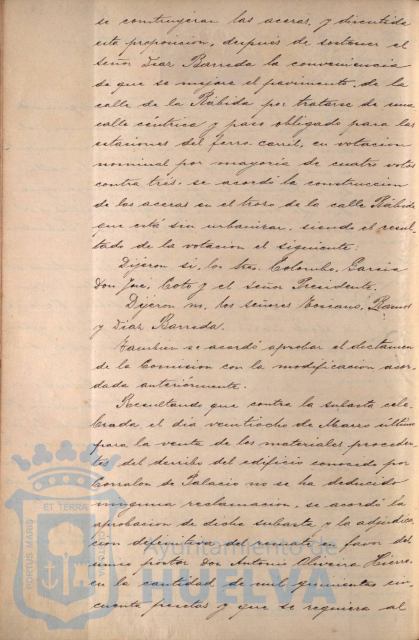 se construyeran las aceras, y discutida
esta proposicion, después de sostener el
Señor Diaz Barreda la conveniencia
de que se mejore el pavimento, de la
calle de la Rábida por tratarse de una
calle céntrica y paso obligado para las
estaciones del ferro carril, en votacion
nominal por mayoria de cuatro votos
contra tres, se acordó la construccion
de las aceras en el trozo de la calle Rábida
que está sin urbanizar, siendo el resul-
tado de la votacion el siguiente:
Dijeron si, los Sres. Colombo, Garcia
Don José, Coto y el señor Presidente.
Dijeron no, los señores Toscano, Ramos
y Diaz Barreda.
Tambien se acordó aprobar el dictamen
de la Comision con la modificacion acor-
dada anteriormente.
Resultando que contra la subasta cele-
brada el dia veintiocho de Marzo último
para la venta de los materiales proceden-
tes del derribo del edificio conocido por
Corralon de Palacio no se ha deducido
ninguna reclamacion, se acordó la
aprobacion de dicha subasta y la adjudica-
cion definitiva del remate a favor del
unico postor don Antonio Oliveira Hierro
en la cantidad de mil quinientas cin-
cuenta pesetas y que se requiera al
Ayuntamiento de
HUELVA
PORTUS MARIS
ET TERRÆ
CUSTODIA